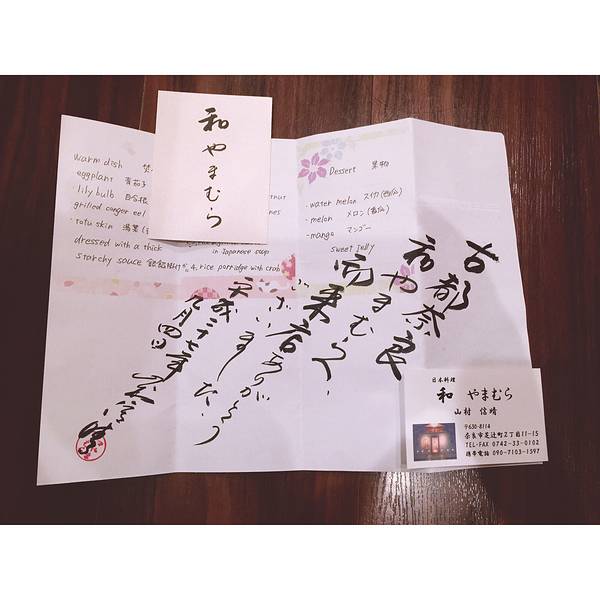 和 やまむら
warm dish
eggplant 青茄子
・lily bulb 百合根
grilled conger eel
・tofu skin 湯葉
dressed with a thick
starchy sauce
in Japanese soup
rice porridge with crab
Dessert 果物
・water melon スイカ
・melon メロン
・mango マンゴー
sweet jelly
古都奈良
和やまむらへ
御来店
ありがとう
ございました。
平成二十七年
九月四日
日本料理
和 やまむら
山村 信晴
〒630-8114
奈良市芝辻町2丁目11-15
TEL・FAX 0742-33-0102
携帯電話 090-7103-1597